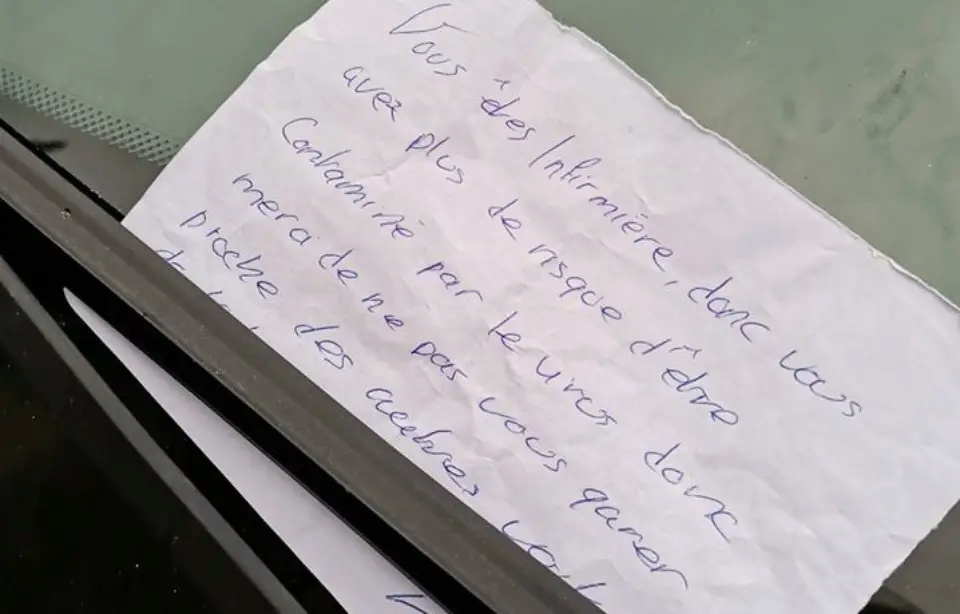 Vous êtes Infirmière, donc vous
avez plus de risque d'être
Contaminé par le virus donc
merci de ne pas vous garer
proche des aeutres